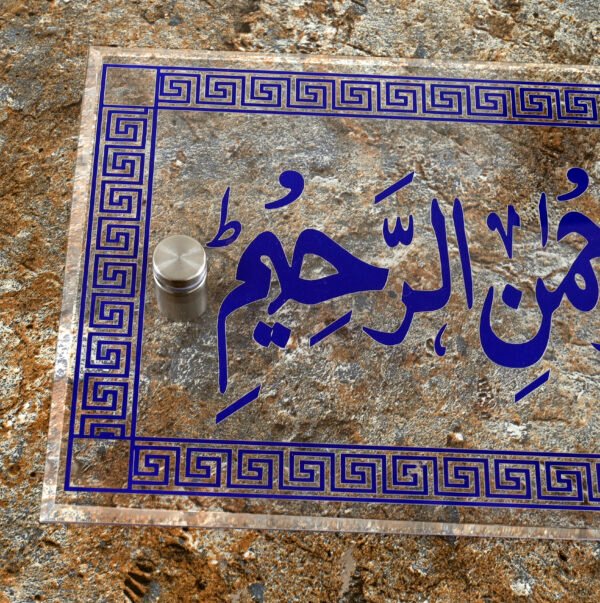 حْمٰنِ الرَّحِيْمِ